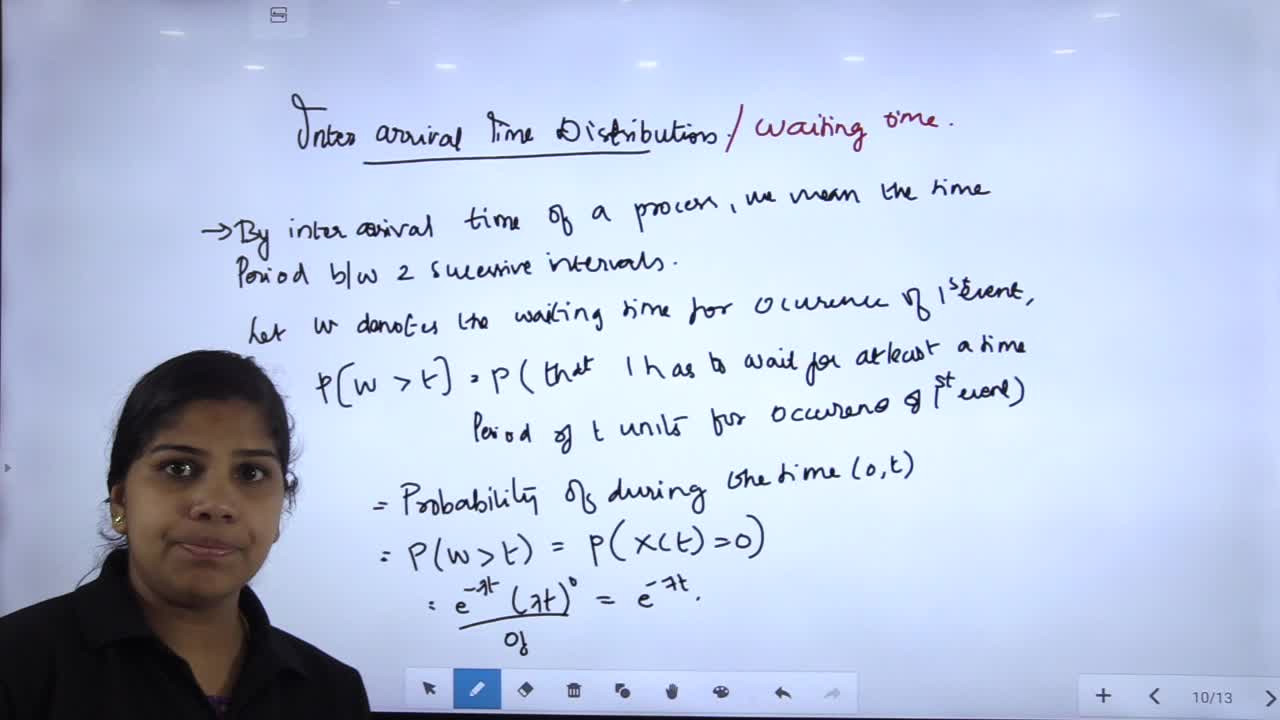 Inter arrival Time Distribution / Waiting time.
→ By inter arrival time of a process, we mean the time
Period b/w 2 sucessive intervals.
Let W denotes the waiting time for Ocurence of 1st event,
P[W > t] = P( that 1 has to wait for atleast a time
Period of t units for occurens of 1st event)
= Probability of during the time (0,t)
= P(W>t) = P(X(t)=0)
= e^-λt (λt)^0 / 0! = e^-λt.
10/13